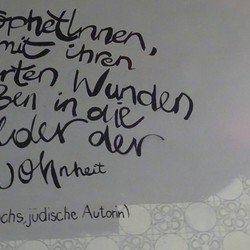 ophetInnen,
mit ihren
rten Wunden
ßen in die
lder der
wohnheit
chs, jüdische Autorin)